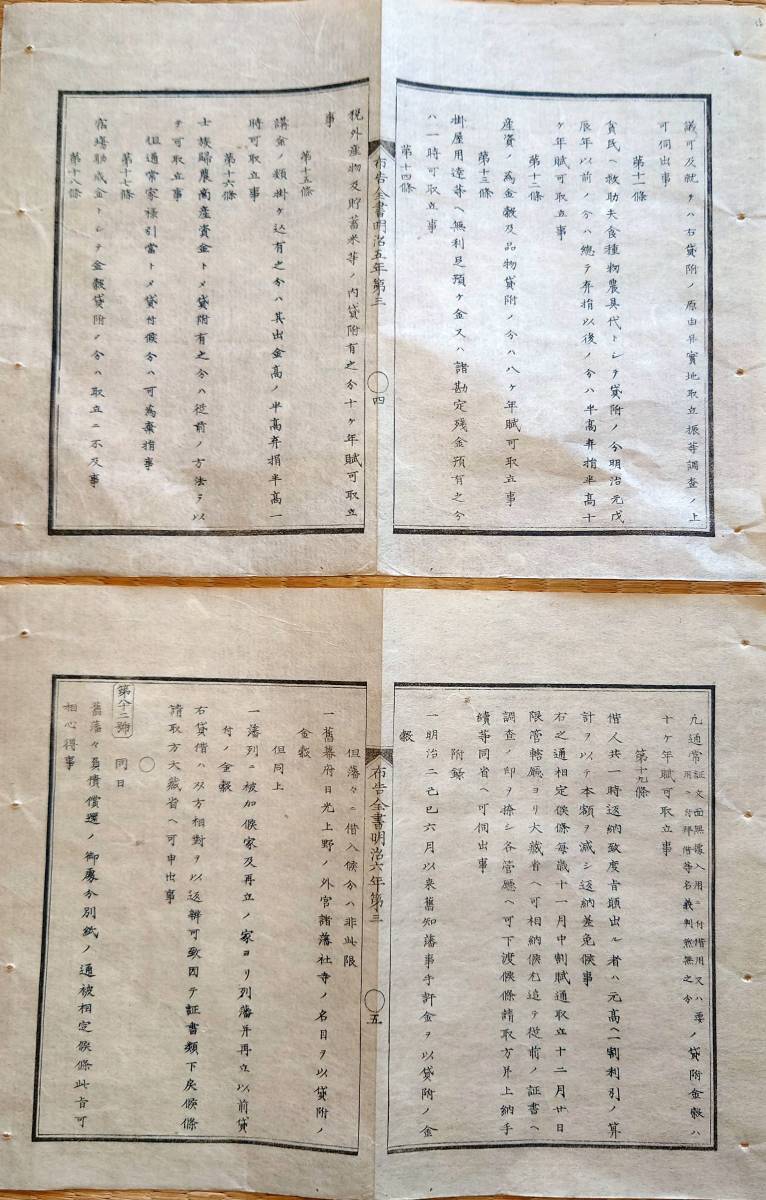 議可及就テハ右貸附ノ原由幷實地取立振等調査ノ上
可伺出事
第十一條
貧民ヘ救助夫食種物農具代トシテ貸附ノ分明治元戊
辰年以前ノ分ハ總テ弃捐以後ノ分ハ半高弃捐半高十
ケ年賦可取立事
第十二條
産資ノ為金穀及品物貸附ノ分ハ八ケ年賦可取立事
第十三條
掛屋用達等ヘ無利足預ケ金又ハ諸勘定残金預有之分
ハ一時可取立事
第十四條
布告全書明治五年第三
四
税外産物及貯蓄米等ノ内貸附有之分十ケ年賦可取立
事
第十五條
講金ノ類掛ケ込有之分ハ其出金高ノ半高弃捐半高一
時可取立事
第十六條
士族歸農商産資金トメ貸附有之分ハ従前ノ方法ヲ以
テ可取立事
但通常家禄引當トメ貸付候分ハ可為棄捐事
第十七條
宿場助成金トシテ金穀貸附ノ分ハ取立ニ不及事
第十八條
凡通常証文面無據入用ニ付借用又ハ要ノ貸附金穀ハ
用ニ付拝借等名義判然無之分
十ケ年賦可取立事
第十九條
借人共一時返納致度旨願出ル者ハ元高ヘ一割利引ノ算
計ヲ以テ本額ヲ減シ返納差免候事
右之通相定候條毎歳十一月中割賦通取立十二月廿日
限管轄廳ヨリ大藏省ヘ可相納候尤追テ従前ノ証書ヘ
調査ノ印ヲ捺シ各管廳ヘ可下渡候條請取方幷上納手
續等同省ヘ可伺出事
附録
一明治二己巳六月以来舊知藩事手許金ヲ以貸附ノ金
穀
布告全書明治六年第三
五
但藩々ニ借入候分ハ非此限
一舊幕府日光上野ノ外官諸藩社寺ノ名目ヲ以貸附ノ
金穀
但同上
一藩列ニ被加候家及再立ノ家ヨリ列藩幷再立以前貸
付ノ金穀
右貸借ハ双方相對ヲ以返辨可致因テ証書類下戻候條
請取方大藏省ヘ可申出事
〇
第八十二號 同日
舊藩々負債償還ノ御處分別紙ノ通被相定候條此旨可
相心得事